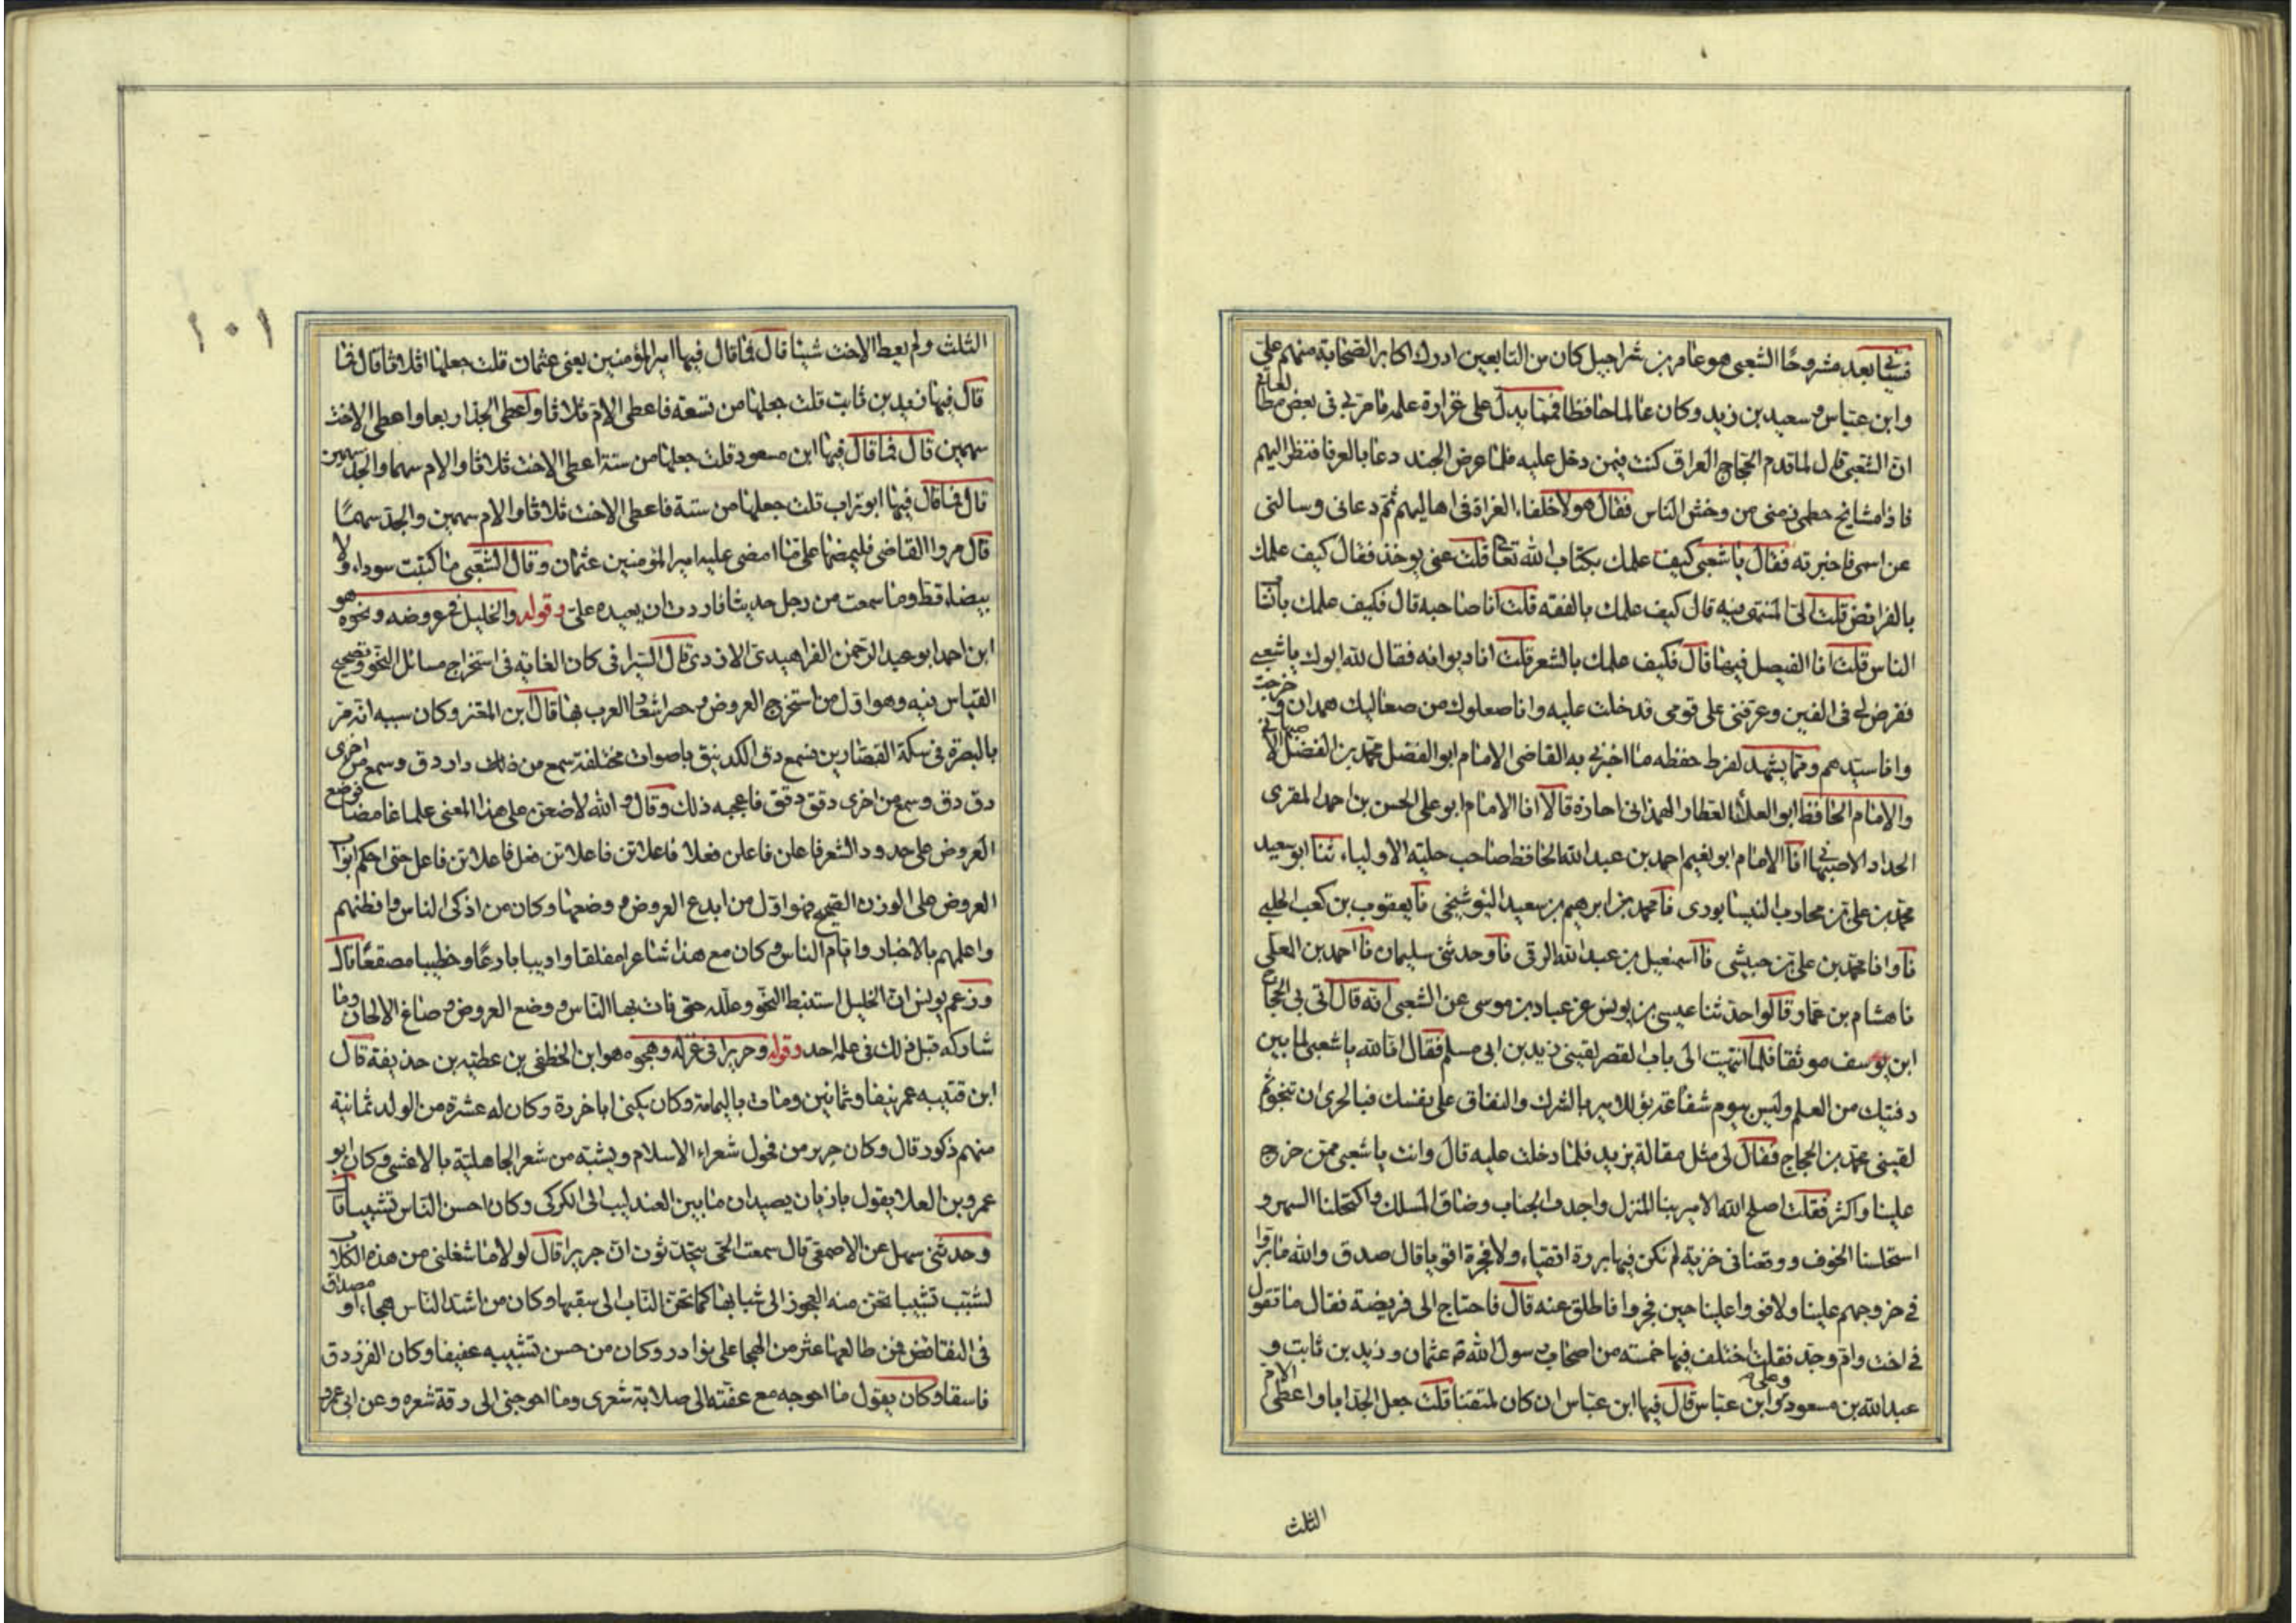 فسيأتى بعد مشروحًا الشعبى هو عامر بن شراحيل كان من التابعين ادرك اكابر الصحابة منهم على
وابن عباس وسعيد بن زيد وكان عالما حافظا فمما يدل على غزارة علمه ما مر بى فى بعض مطالعاتى
ان الشعبى قال لما قدم الحجاج العراق كنت فيمن دخل عليه فلما عرض الجند دعا بالعرفا فنظر اليهم
فاذا مشايخ حطمى زمنى من وخش الناس فقال هولا خلفاء الغزاة فى اهاليهم ثم دعانى وسالنى
عن اسمى فاخبرته فقال يا شعبى كيف علمك بكتاب الله تعا قلت عنى يوخذ فقال كيف علمك
بالفرائض قلت الىّ المنتهى فيه قال كيف علمك بالفقه قلت انا صاحبه قال فكيف علمك بانساب
الناس قلت انا الفيصل فيها قال فكيف علمك بالشعر قلت انا ديوانه فقال لله ابوك يا شعبى
ففرض لى فى الفين وعرفنى على قومى قد خلت عليه وانا صعلوك من صعاليك همدان وخرجت
وانا سيدهم ومما يشهد لفرط حفظه ما اخبرنى به القاضى الامام ابو الفضل محمد بن الفضل الاصبهانى
والامام الحافظ ابو العلاء العطار الهمدانى اجازة قالا انا الامام ابو على الحسن بن احمد المقرى
الحداد الاصبهانى انا الامام ابو نعيم احمد بن عبد الله الحافظ صاحب حلية الاولياء ثنا ابو سعيد
محمد بن على بن محارب النيسابورى نا محمد بن ابرهيم بن سعيد البوشنجى نا يعقوب بن كعب الحلبى
نا وانا محمد بن على بن حبيش نا اسمعيل بن عبد الله الرقى نا وحدثنى سليمان نا احمد بن المعلى
نا هشام بن عمار قالوا حدثنا عيسى بن يونس عن عباد بن موسى عن الشعبى انه قال اتى بى الحجاج
ابن يوسف موثقا فلما انتهيت الى باب القصر لقينى يزيد بن ابى مسلم فقال انا لله يا شعبى لما بين
دفتيك من العلم وليس بيوم شفاعة بؤ للامير بالشرك والنفاق على نفسك فبالحرى ان تنجو ثم
لقينى محمد بن الحجاج فقال لى مثل مقالة يزيد فلما دخلت عليه قال وانت يا شعبى ممن خرج
علينا وكثر فقلت اصلح الله الامير بنا المنزل واجدب الجناب وضاق المسلك واكتحلنا السهر و
استحلسنا الخوف ووقعنا فى خزية لم نكن فيها بررة اتقياء ولا فجرة اقويا قال صدق والله ما بروا
فى خروجهم علينا ولا قووا علينا حين فجروا فاطلق عنه قال فاحتاج الى فريضة فقال ما تقول
فى اخت وام وجد فقلت اختلف فيها خمسة من اصحاب رسول الله عثمان وزيد بن ثابت و
عبد الله بن مسعود وعلى وابن عباس قال فيها ابن عباس ان كان لمتقنا قلت جعل الجد ابا واعطى الام
الثلث
١٠١
الثلث ولم يعط الاخت شيئا قال فما قال فيها امير المؤمنين يعنى عثمان قلت جعلها اثلاثا قال فما
قال فيها زيد بن ثابت قلت جعلها من تسعة فاعطى الام ثلاثا واعطى الجد اربعا واعطى الاخت
سهمين قال فما قال فيها ابن مسعود قلت جعلها من ستة اعطى الاخت ثلاثا والام سهما والجد سهمين
قال فما قال فيها ابو تراب قلت جعلها من ستة فاعطى الاخت ثلاثا والام سهمين والجد سهمًا
قال مروا القاضى فليمضها على ما امضى عليه امير المؤمنين عثمان وقال الشعبى ما كتبت سوداء ولا
بيضاء قط وما سمعت من رجل حديثا فاردت ان يعيده علىّ وقوله والخليل فى عروضه ونحوه هو
ابن احمد ابو عبد الرحمن الفراهيدى الازدى قال السيرافى كان الغاية فى استخراج مسائل النحو وتصحيح
القياس فيه وهو اول من استخرج العروض وحصر اشعار العرب بها قال ابن المعتز وكان سببه انه مر
بالبصرة فى سكة القصارين فسمع دق الكدينق باصوات مختلفة سمع من ذلك دار دق وسمع من اخرى
دق دق وسمع من اخرى دقق دقق فاعجبه ذلك وقال والله لاضعن على هذا المعنى علما غامضا فوضع
العروض على حدود الشعر فاعلن فاعلن فعلا فاعلاتن فاعلاتن فعل فاعلاتن فاعل حتى احكم ابواب
العروض على الوزن الصحيح فهو اول من ابدع العروض ووضعها وكان من اذكى الناس وافطنهم
واعلمهم بالاخبار وايام الناس وكان مع هذا شاعرا مفلقا واديبا بارعًا وخطيبا مصقعًا قال
وزعم يونس ان الخليل استنبط النحو وعلله حتى فات بها الناس ووضع العروض وصاغ الالحان وما
شاركه قبل ذلك فى علمه احد وقوله وجريرا فى غزله وهجوه هو ابن الخطفى بن عطيه بن حذيفة قال
ابن قتيبه عمر نيفا وثمانين ومات باليمامة وكان يكنى ابا حزرة وكان له عشرة من الولد ثمانية
منهم ذكور قال وكان جرير من فحول شعراء الاسلام ويشبه من شعر الجاهلية بالاعشى وكان ابو
عمرو بن العلا يقول بازيان يصيدان ما بين العندليب الى الكركى وكان احسن الناس تشبيبا قال
وحدثنى سهل عن الاصمعى قال سمعت الحى يتحدثون ان جريرا قال لولا ما شغلنى من هذه الكلاب
لشببت تشبيبا تحن منه العجوز الى شبابها كما تحن الناب الى سقبها وكان من اشد الناس هجاء ومصداق
فى النقائض فمن طالعها عثر من الهجا على نوادر وكان من حسن تشبيبه عفيفا وكان الفرزدق
فاسقا وكان يقول ما احوجه مع عفته الى صلابة شعرى وما احوجنى الى رقة شعره وعن ابى عمرو